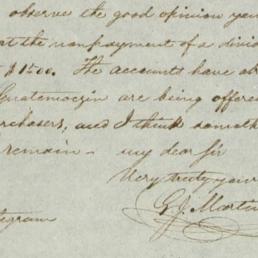 observe the good opinion you
at the nonpayment of a divid
$1500. The accounts have ab
Guatemoczin are being offere
rchasers, and I think somethi
remain - my dear Sir
Very truly your
G.J. Martin
egram